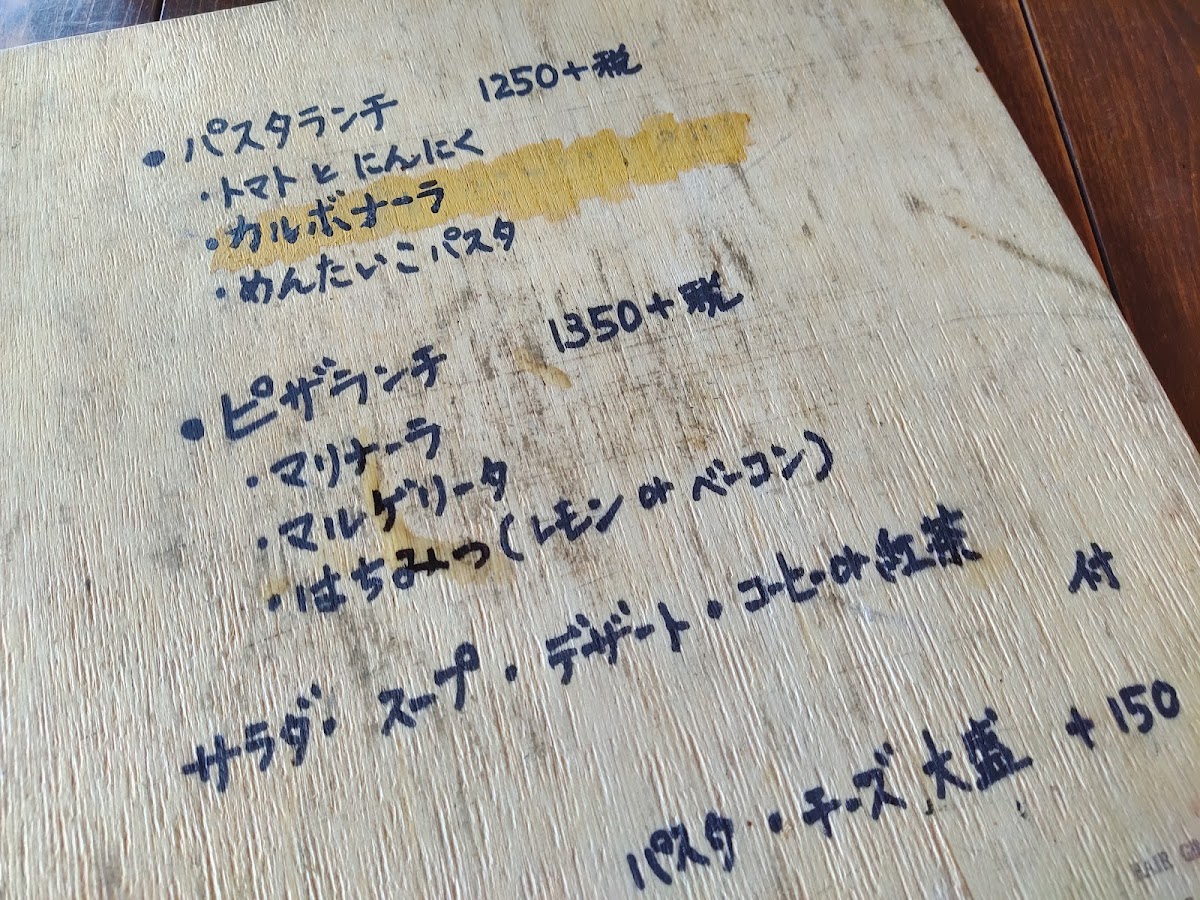 • パスタランチ 1250+税
・トマトとにんにく
・カルボナーラ
・めんたいこパスタ
• ピザランチ 1350+税
・マリナーラ
・マルゲリータ
・はちみつ(レモン or ベーコン)
サラダ・スープ・デザート・コーヒーor紅茶 付
パスタ・チーズ大盛 +150